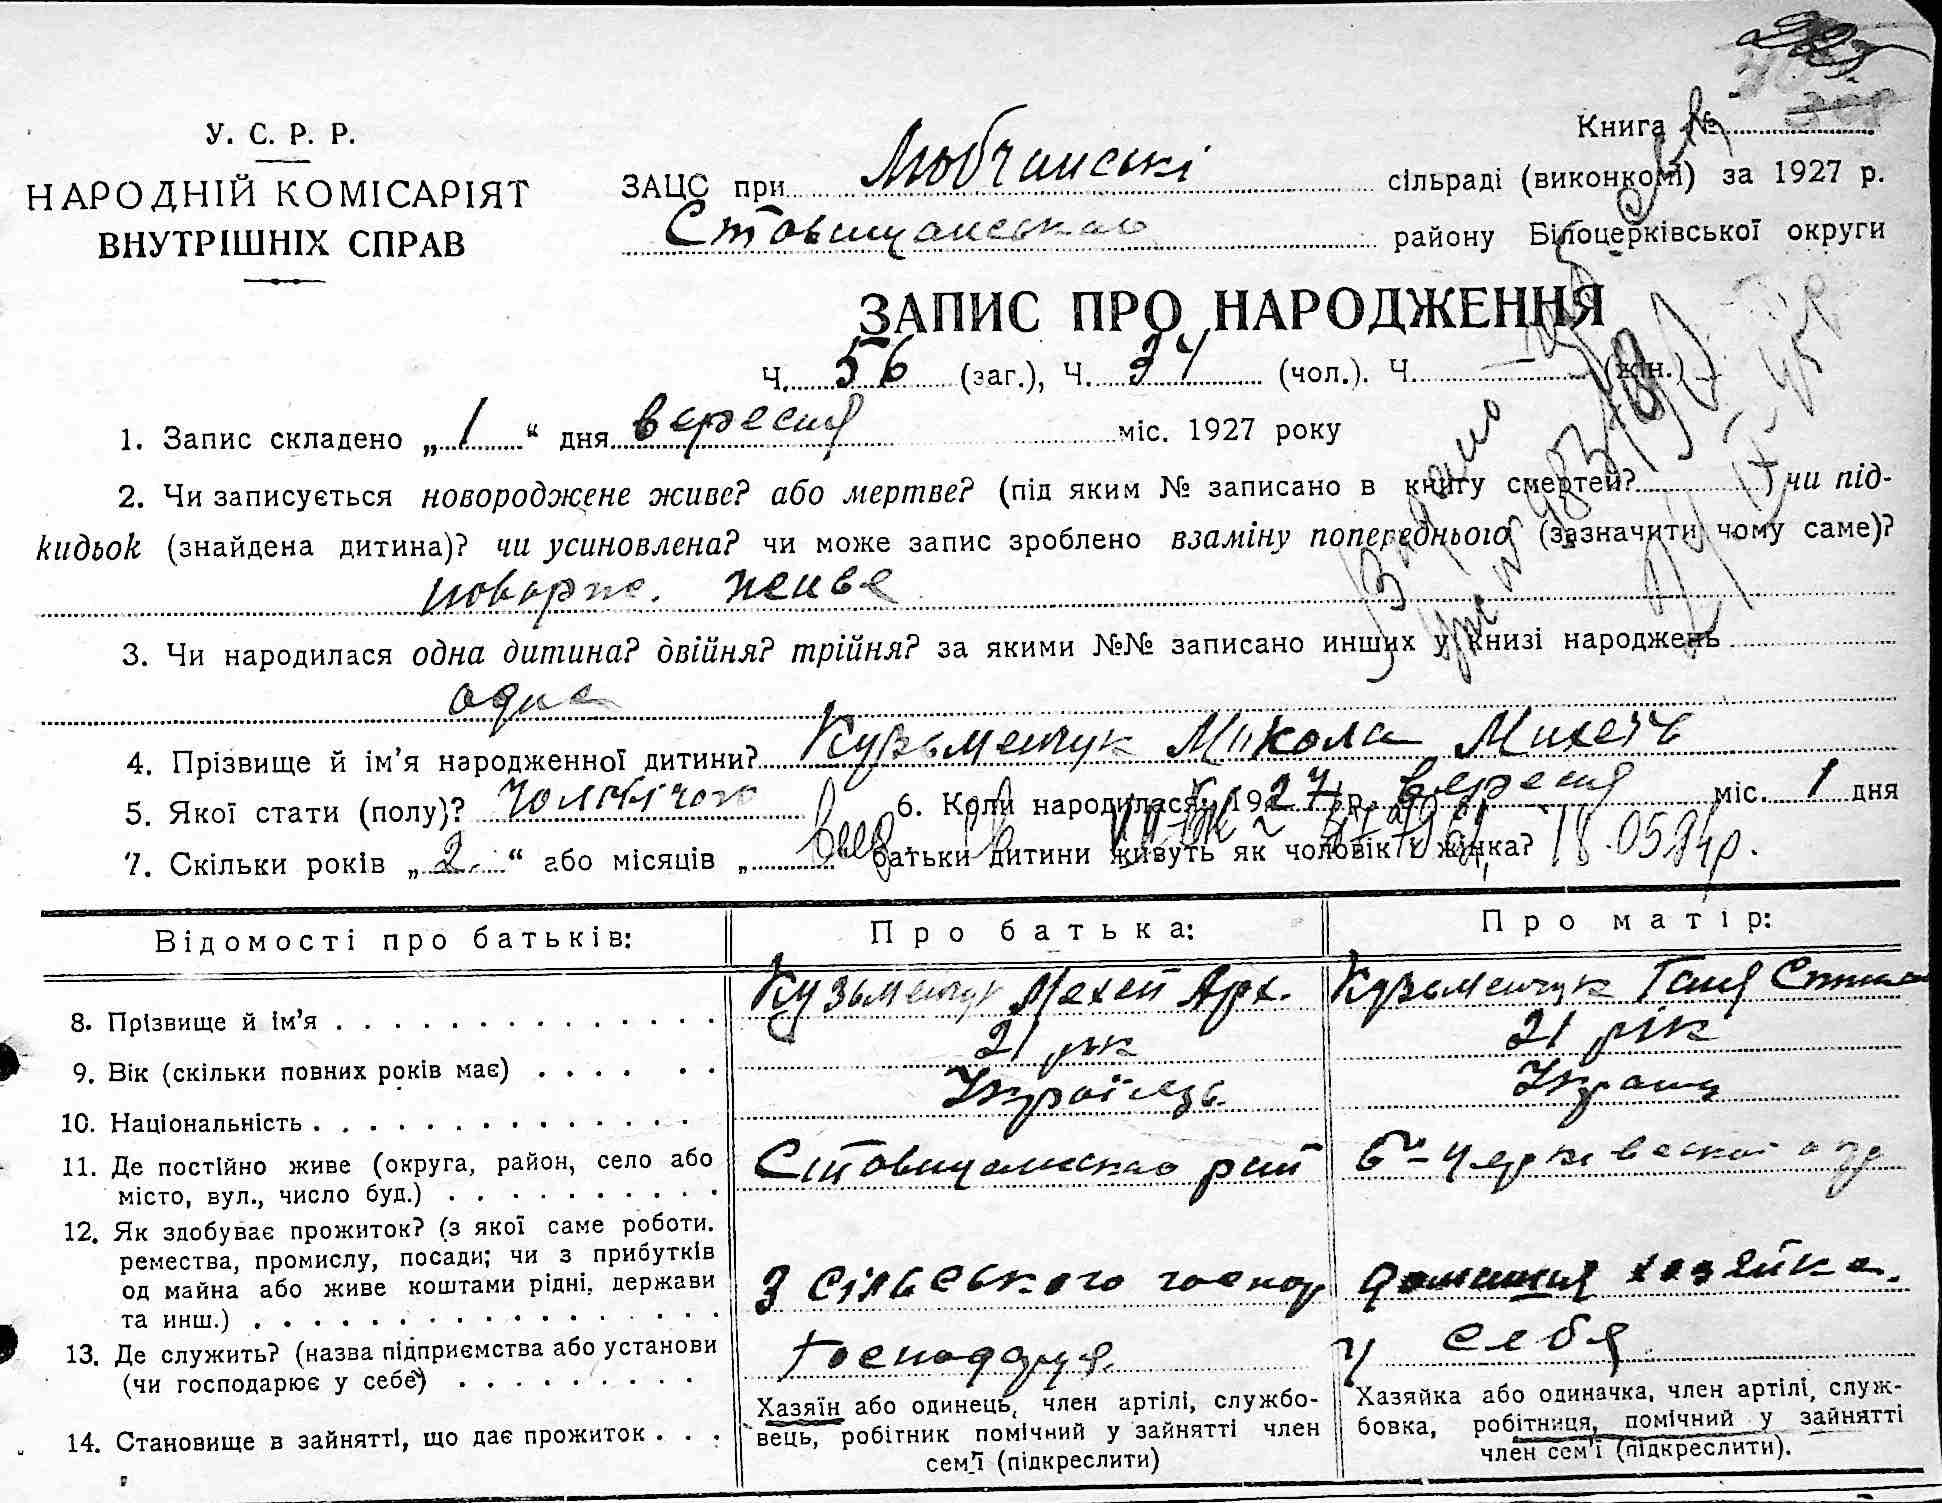 У. С. Р. Р.
НАРОДНІЙ КОМІСАРІЯТ
ВНУТРІШНІХ СПРАВ
Книга №
ЗАЦС при Любчинські сільраді (виконкомі) за 1927 р.
району Білоцерківської округи
ЗАПИС ПРО НАРОДЖЕННЯ
Ч. 56 (заг.), Ч. 34 (чол.). Ч. — (жін.)
1. Запис складено „1“ дня вересня міс. 1927 року
2. Чи записується новороджене живе? або мертве? (під яким № записано в книгу смертей? ) чи під-
кидьок (знайдена дитина)? чи усиновлена? чи може запис зроблено взаміну попереднього (зазначити чому саме)?
живе
3. Чи народилася одна дитина? двійня? трійня? за якими №№ записано инших у книзі народжень
одна
4. Прізвище й ім’я народженної дитини? Кузьменчук Микола
5. Якої стати (полу)? 6. Коли народилася: 1927 р. вересня міс. 1 дня
7. Скільки років „2“ або місяців „ “ батьки дитини живуть як чоловік і жінка?
18.05.94р.
Відомості про батьків:
Про батька:
Про матір:
8. Прізвище й ім’я
Кузьменчук Мехей Арх.
Кузьменчук Ганя
9. Вік (скільки повних років має)
21 рік
21 рік
10. Національність
Українць
11. Де постійно живе (округа, район, село або
місто, вул., число буд.)
12. Як здобуває прожиток? (з якої саме роботи.
ремества, промислу, посади; чи з прибутків
од майна або живе коштами рідні, держави
та инш.)
З сільського госпор
домашня хозяйка.
13. Де служить? (назва підприємства або установи
(чи господарює у себе)
у себя
14. Становище в зайнятті, що дає прожиток
Хазяїн або одинець, член артілі, службо-
вець, робітник помічний у зайнятті член
сем’ї (підкреслити)
Хазяйка або одиначка, член артілі, служ-
бовка, робітниця, помічний у зайнятті
член сем’ї (підкреслити).